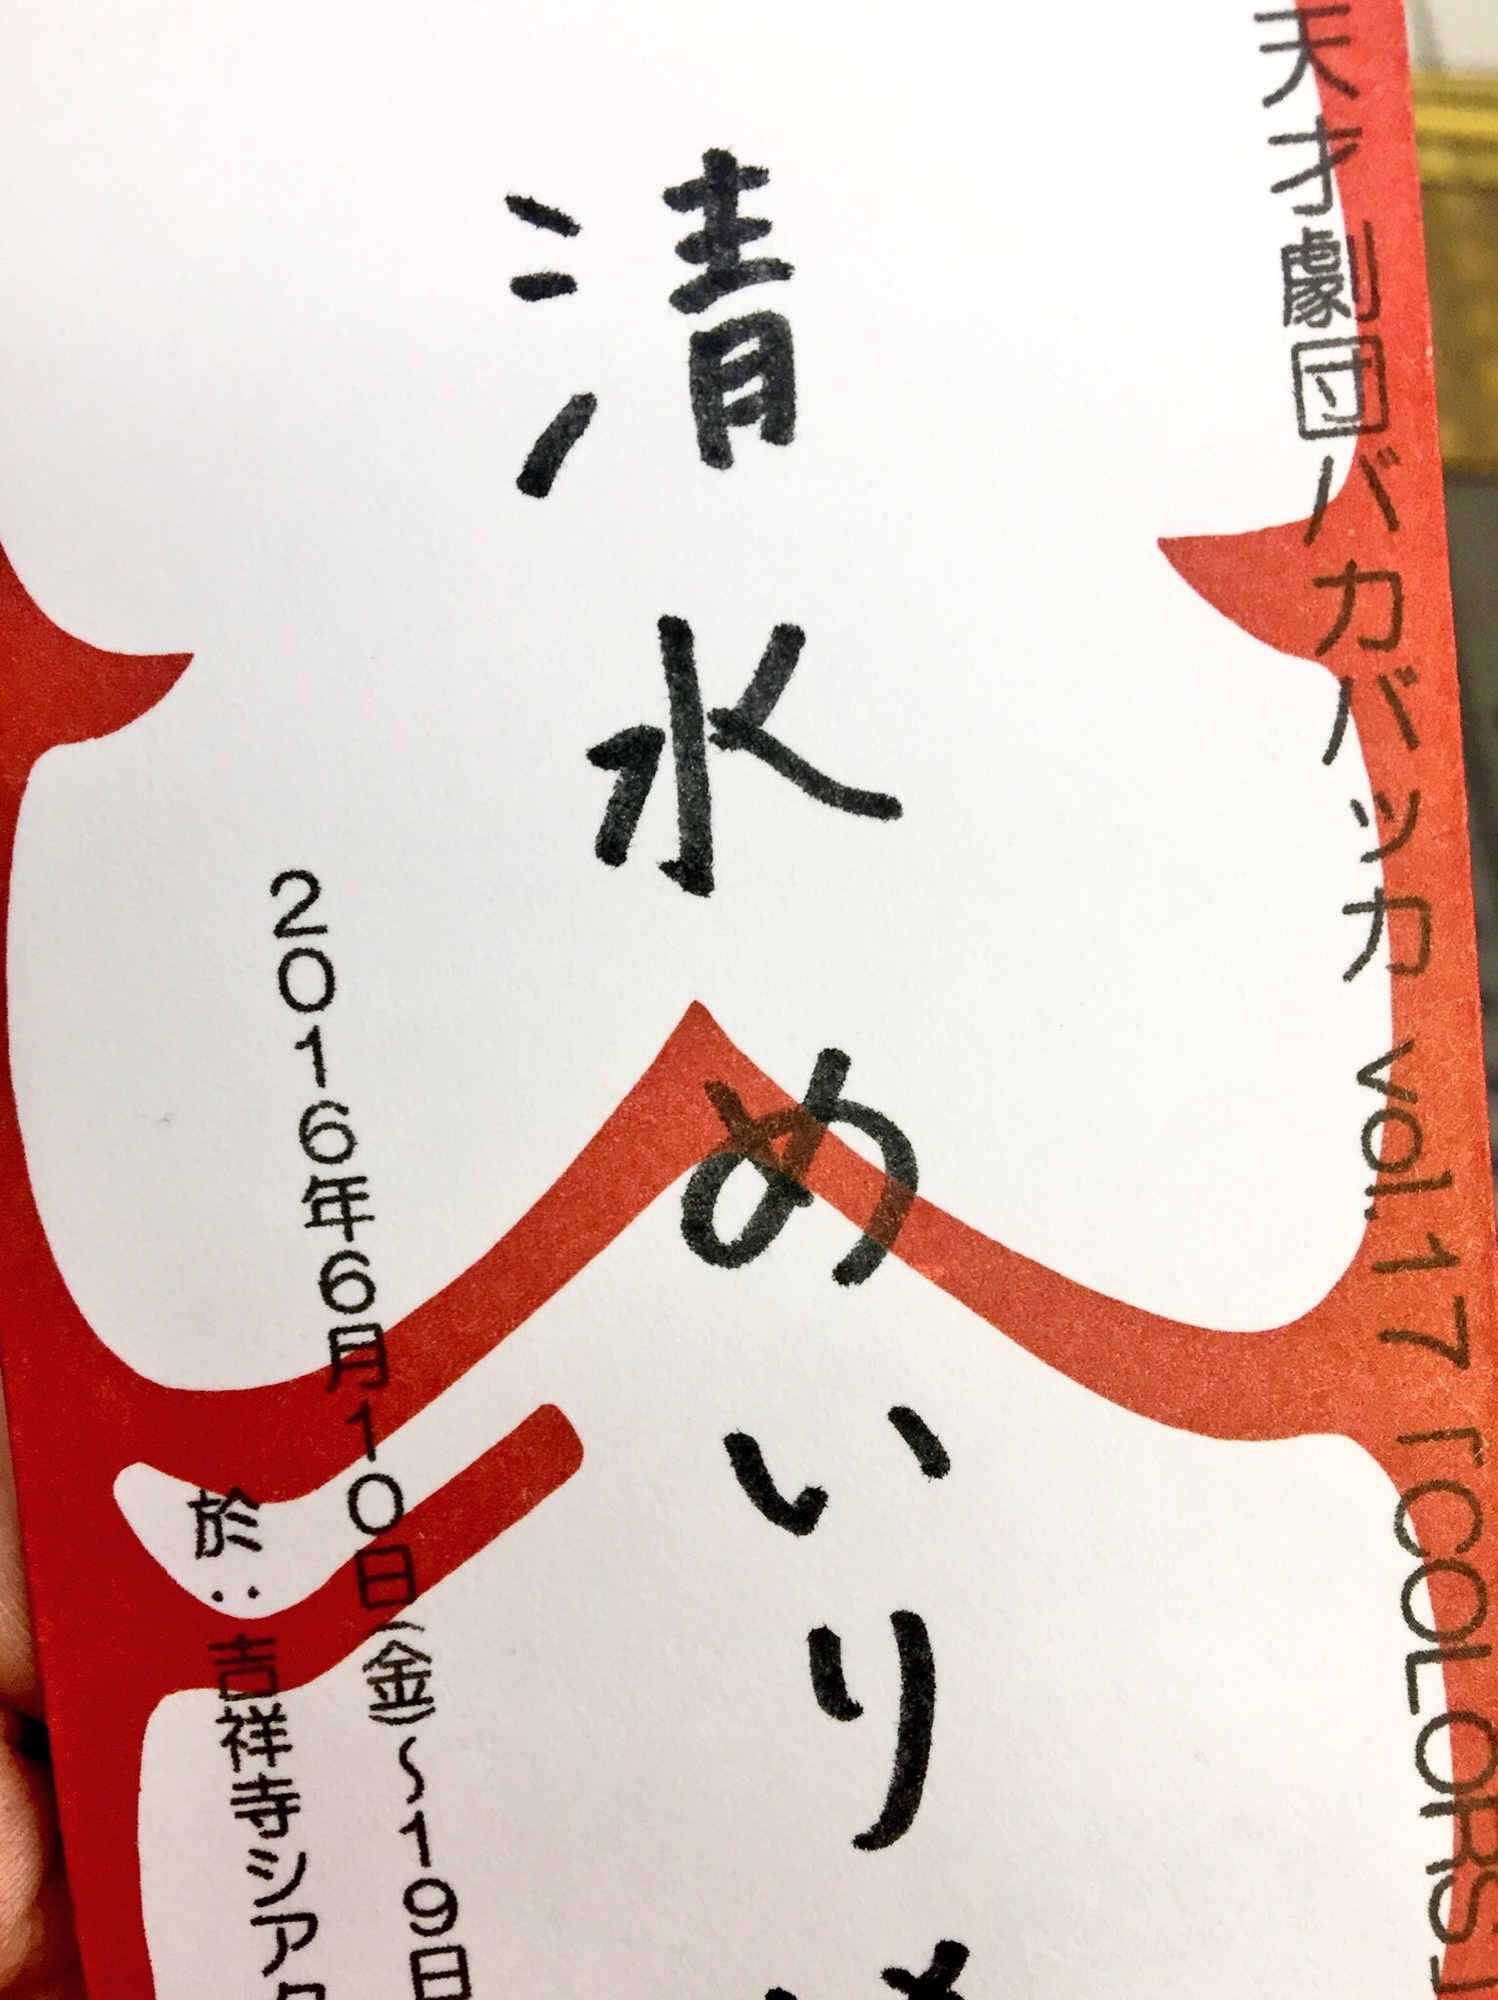 天才劇団バカバッカ vol.17「COLORS」
清水めいり
2016年6月10日(金)～19日
於：吉祥寺シア